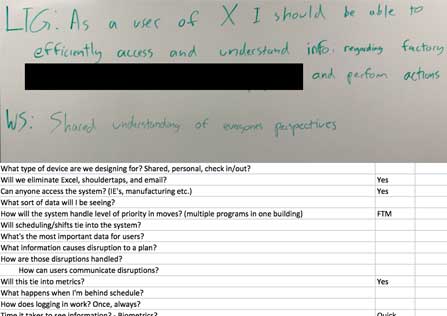 LTG: As a user of X I should be able to
efficiently access and understand info. regarding factory
and perform actions
WS: Shared understanding of everyones perspectives
What type of device are we designing for? Shared, personal, check in/out?
Will we eliminate Excel, shouldertaps, and email? Yes
Can anyone access the system? (IE's, manufacturing etc.) Yes
What sort of data will I be seeing?
How will the system handle level of priority in moves? (multiple programs in one building) FTM
Will scheduling/shifts tie into the system?
What's the most important data for users?
What information causes disruption to a plan?
How are those disruptions handled?
How can users communicate disruptions?
Will this tie into metrics? Yes
What happens when I'm behind schedule?
How does logging in work? Once, always?
Time it takes to see information? - Biometrics? Quick